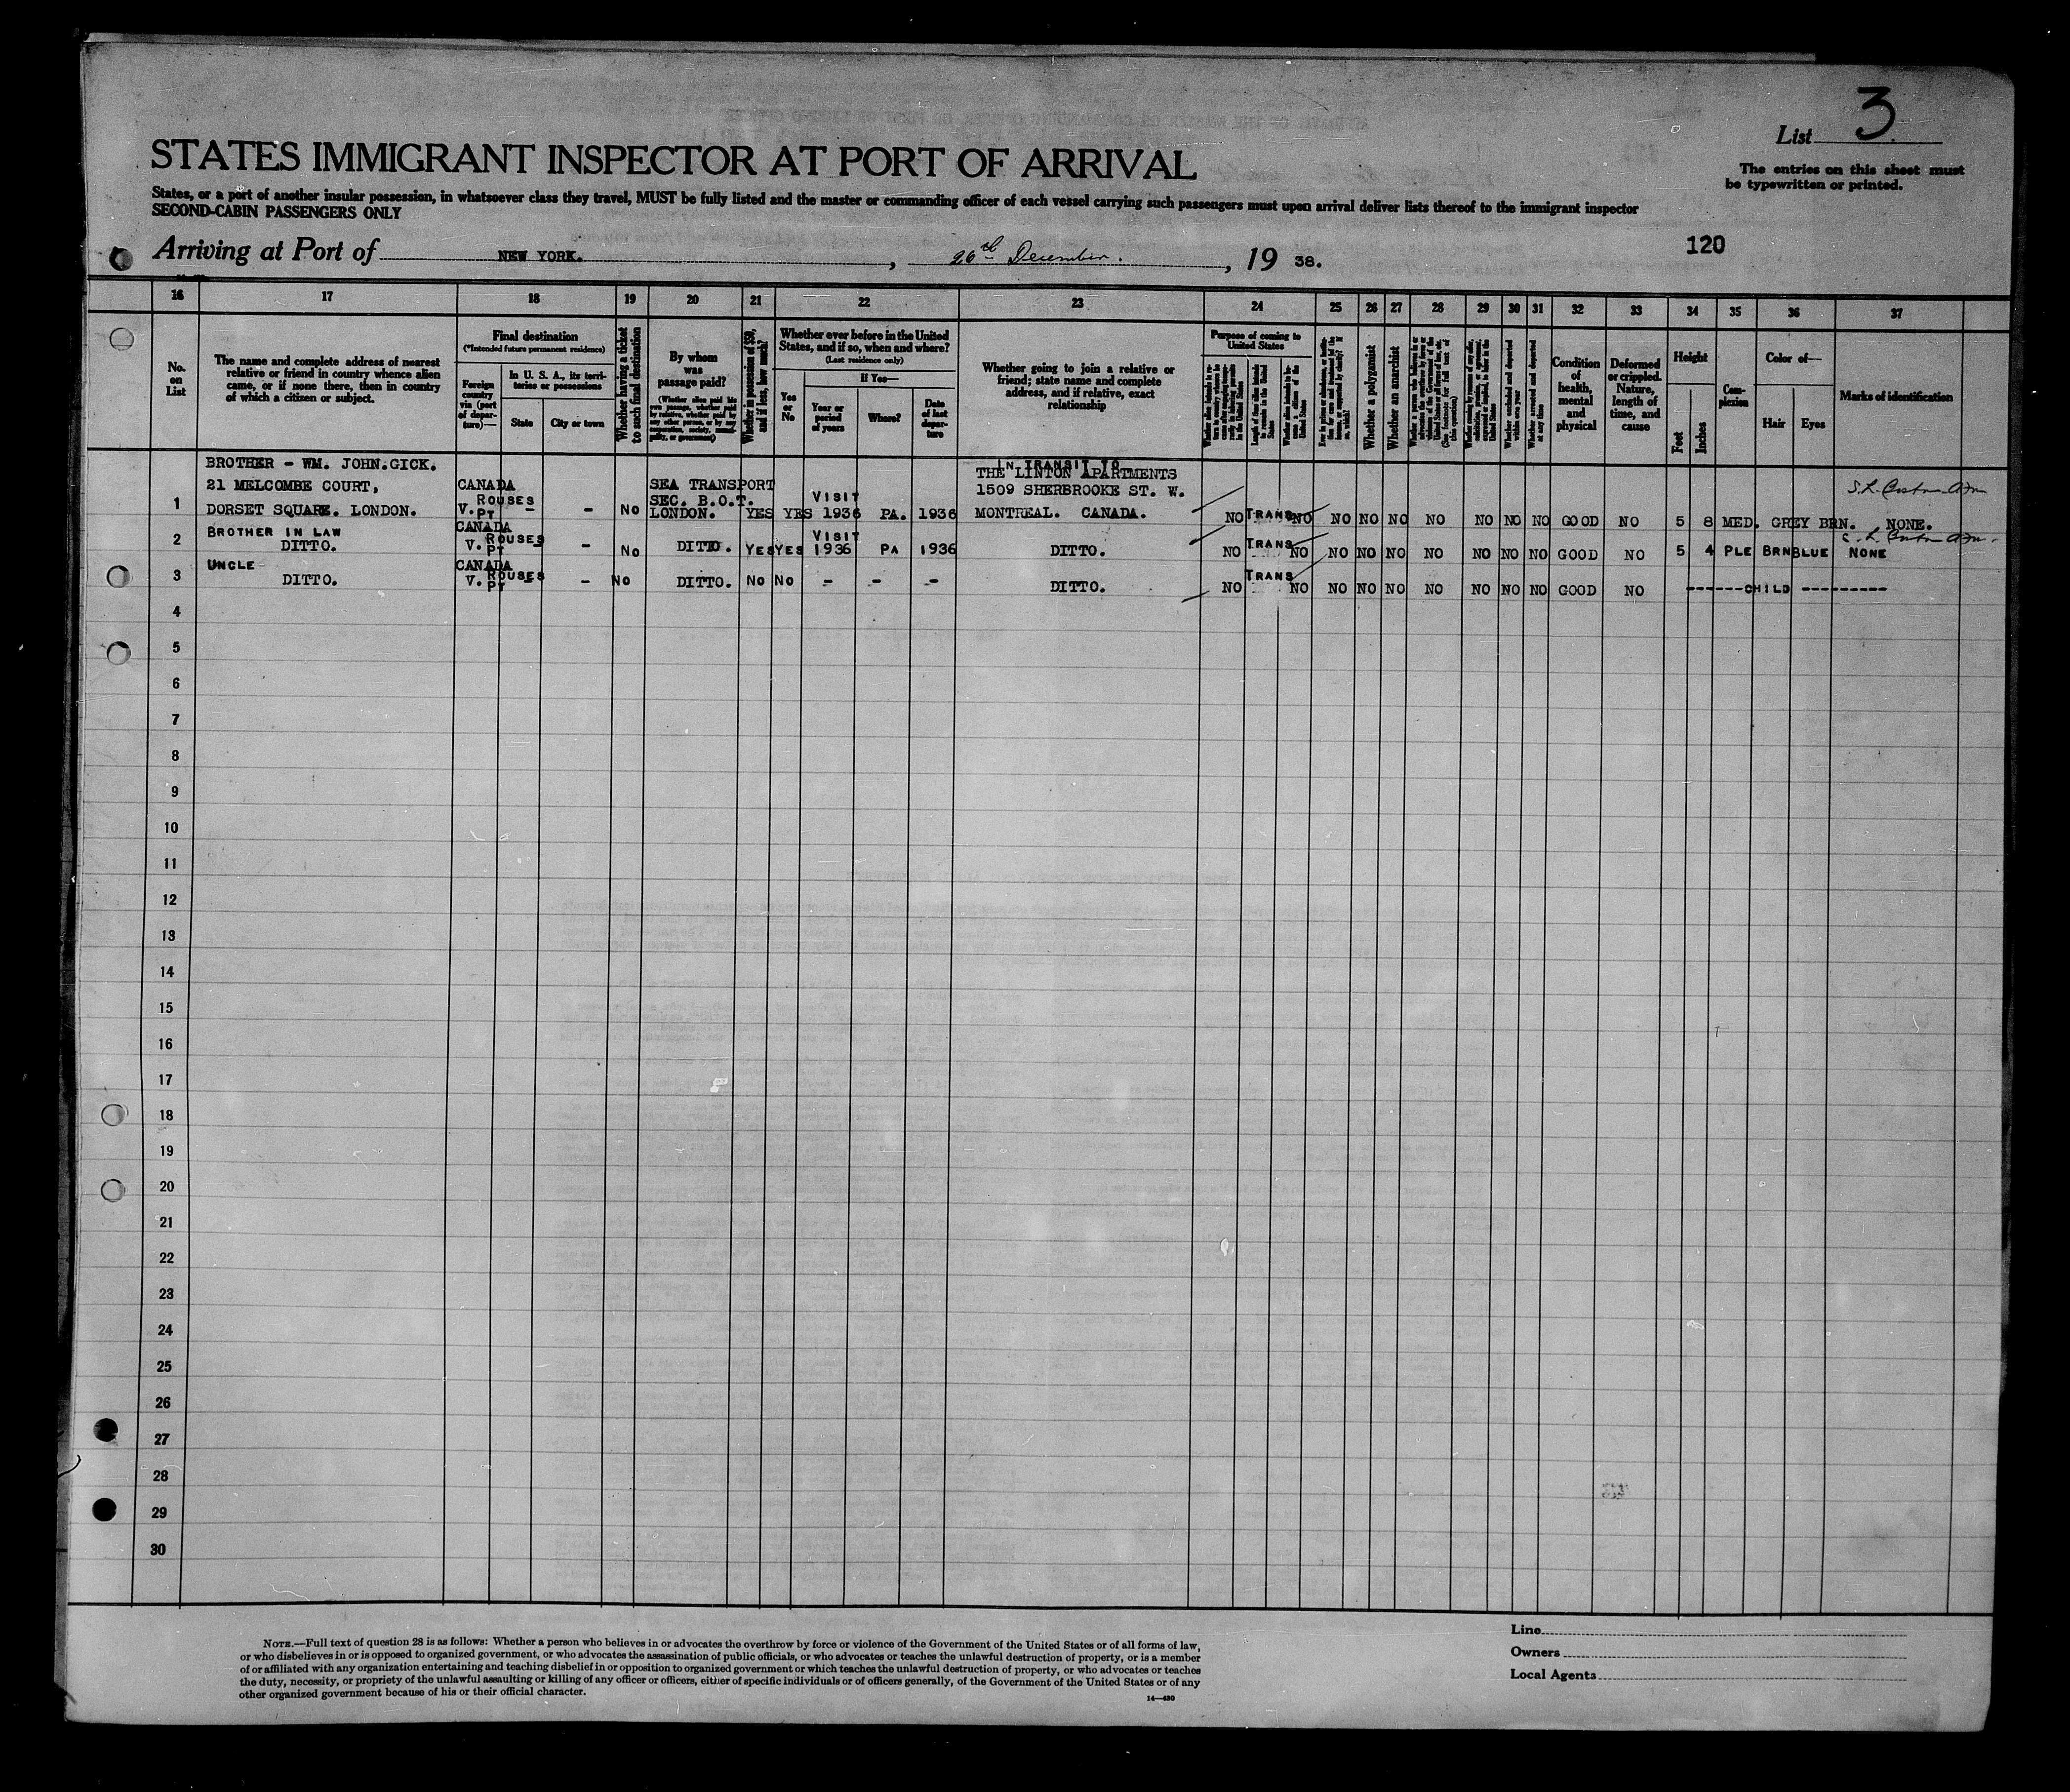 List 3.
STATES IMMIGRANT INSPECTOR AT PORT OF ARRIVAL
The entries on this sheet must
be typewritten or printed.
States, or a port of another insular possession, in whatsoever class they travel, MUST be fully listed and the master or commanding officer of each vessel carrying such passengers must upon arrival deliver lists thereof to the immigrant inspector
SECOND-CABIN PASSENGERS ONLY
120
Arriving at Port of NEW YORK. , 26th December. , 19 38.
16 17 18 19 20 21 22 23 24 25 26 27 28 29 30 31 32 33 34 35 36 37
No.
on
List
The name and complete address of nearest
relative or friend in country whence alien
came, or if none there, then in country
of which a citizen or subject.
Final destination
(*Intended future permanent residence)
Foreign
country
via (port
of depar-
ture)—
In U. S. A., its terri-
tories or possessions
State
City or town
Whether having a ticket
to such final destination
By whom
was
passage paid?
(Whether alien paid his
own passage, whether paid
by relative, whether paid by
any other person, or by any
corporation, society, munici-
pality, or government)
Whether in possession of $50,
and if less, how much?
Whether ever before in the United
States, and if so, when and where?
(Last residence only)
Yes
or
No
If Yes—
Year or
period
of years
Where?
Date
of last
depar-
ture
Whether going to join a relative or
friend; state name and complete
address, and if relative, exact
relationship
Purpose of coming to
United States
Length of time alien intends
to remain in the United
States
Whether a polygamist
Whether an anarchist
(See footnote for full text of
this question)
Whether excluded and deported
within one year
Whether arrested and deported
at any time
Condition
of
health,
mental
and
physical
Deformed
or crippled.
Nature,
length of
time, and
cause
Height
Feet
Inches
Com-
plexion
Color of—
Hair
Eyes
Marks of identification
1 BROTHER - WM. JOHN.GICK.
21 MELCOMBE COURT,
DORSET SQUARE. LONDON.
CANADA
V. ROUSES
PT - - NO
SEA TRANSPORT
SEC. B.O.T.
LONDON. YES YES VISIT
1936 PA. 1936
IN TRANSIT TO
THE LINTON APARTMENTS
1509 SHERBROOKE ST. W.
MONTREAL. CANADA.
NO TRANS NO NO NO NO NO NO NO NO GOOD NO 5 8 MED. GREY BRN. NONE.
2 BROTHER IN LAW
DITTO.
CANADA
V. ROUSES
PT - - NO DITTO. YES YES VISIT
1936 PA 1936 DITTO. NO TRANS NO NO NO NO NO NO NO NO GOOD NO 5 4 PLE BRN BLUE NONE
3 UNCLE
DITTO.
CANADA
V. ROUSES
PT - - NO DITTO. NO NO - - - DITTO. NO TRANS NO NO NO NO NO NO NO NO GOOD NO ------CHILD ---------
4
5
6
7
8
9
10
11
12
13
14
15
16
17
18
19
20
21
22
23
24
25
26
27
28
29
30
NOTE.—Full text of question 28 is as follows: Whether a person who believes in or advocates the overthrow by force or violence of the Government of the United States or of all forms of law,
or who disbelieves in or is opposed to organized government, or who advocates the assassination of public officials, or who advocates or teaches the unlawful destruction of property, or is a member
of or affiliated with any organization entertaining and teaching disbelief in or opposition to organized government or which teaches the unlawful destruction of property, or who advocates or teaches
the duty, necessity, or propriety of the unlawful assaulting or killing of any officer or officers, either of specific individuals or of officers generally, of the Government of the United States or of any
other organized government because of his or their official character.
14—430
Line
Owners
Local Agents